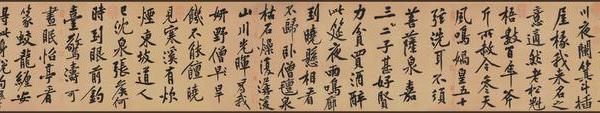 川夜闌箕斗插
屋椽我來名之
意適然老松魁
梧數百年斧
斤所赦今參天
風鳴媧皇五十
弦洗耳不須
菩薩泉嘉
三二子甚好賢
力貧買酒醉
此筵夜雨鳴廊
到曉懸相看
不歸臥僧氈泉
枯石燥復潺湲
山川光暉為我
妍野僧旱
饑不能饘曉
見寒溪有炊
煙東坡道人
已沈泉張侯何
時到眼前釣
臺驚濤可
晝眠怡亭看
篆蛟龍纏安
得此身脫